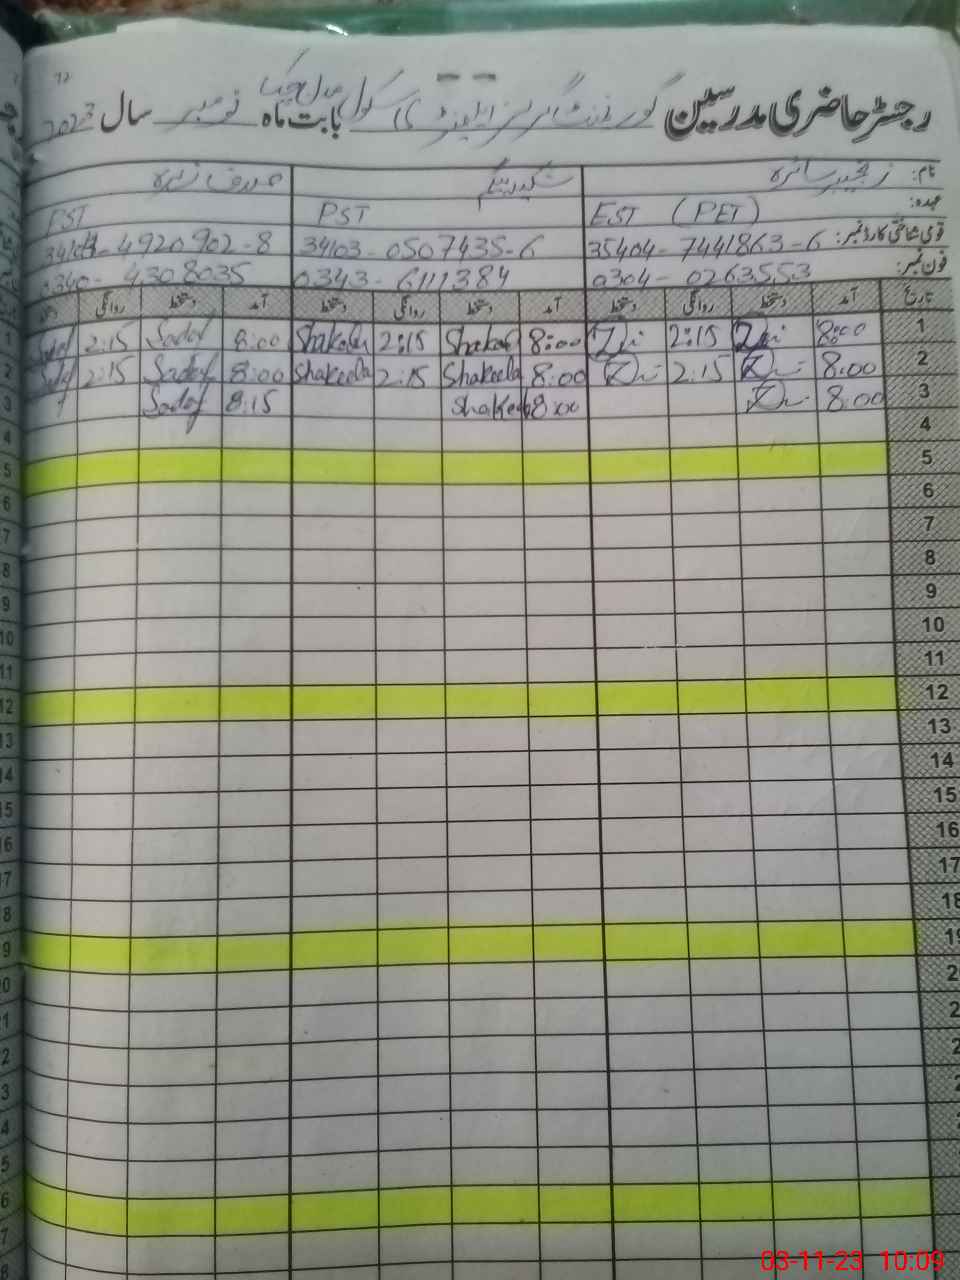 رجسٹر حاضری مدرسین گورنمنٹ گرلز ایلیمنٹری سکول بابت ماہ نومبر سال 2023
نام: سائرہ شکیلہ بیگم صدف زہرہ
عہدہ: EST (PET) PST PST
قومی شناختی کارڈ نمبر: 35404-7441863-6 34103-0507435-6 4920902-8
فون نمبر: 0304-0263553 0343-6111384 0340-4308035
تاریخ آمد دستخط روانگی دستخط آمد دستخط روانگی دستخط آمد دستخط روانگی
1 8:00 2:15 8:00 Shakeela 2:15 Shakeela 8:00 Sadaf 2:15 Sadaf
2 8:00 2:15 8:00 Shakeela 2:15 Shakeela 8:00 Sadaf 2:15 Sadaf
3 8:00 8:00 Shakeela 8:15 Sadaf
4
5
6
7
8
9
10
11
12
13
14
15
16
17
18
19
03-11-23 10:09